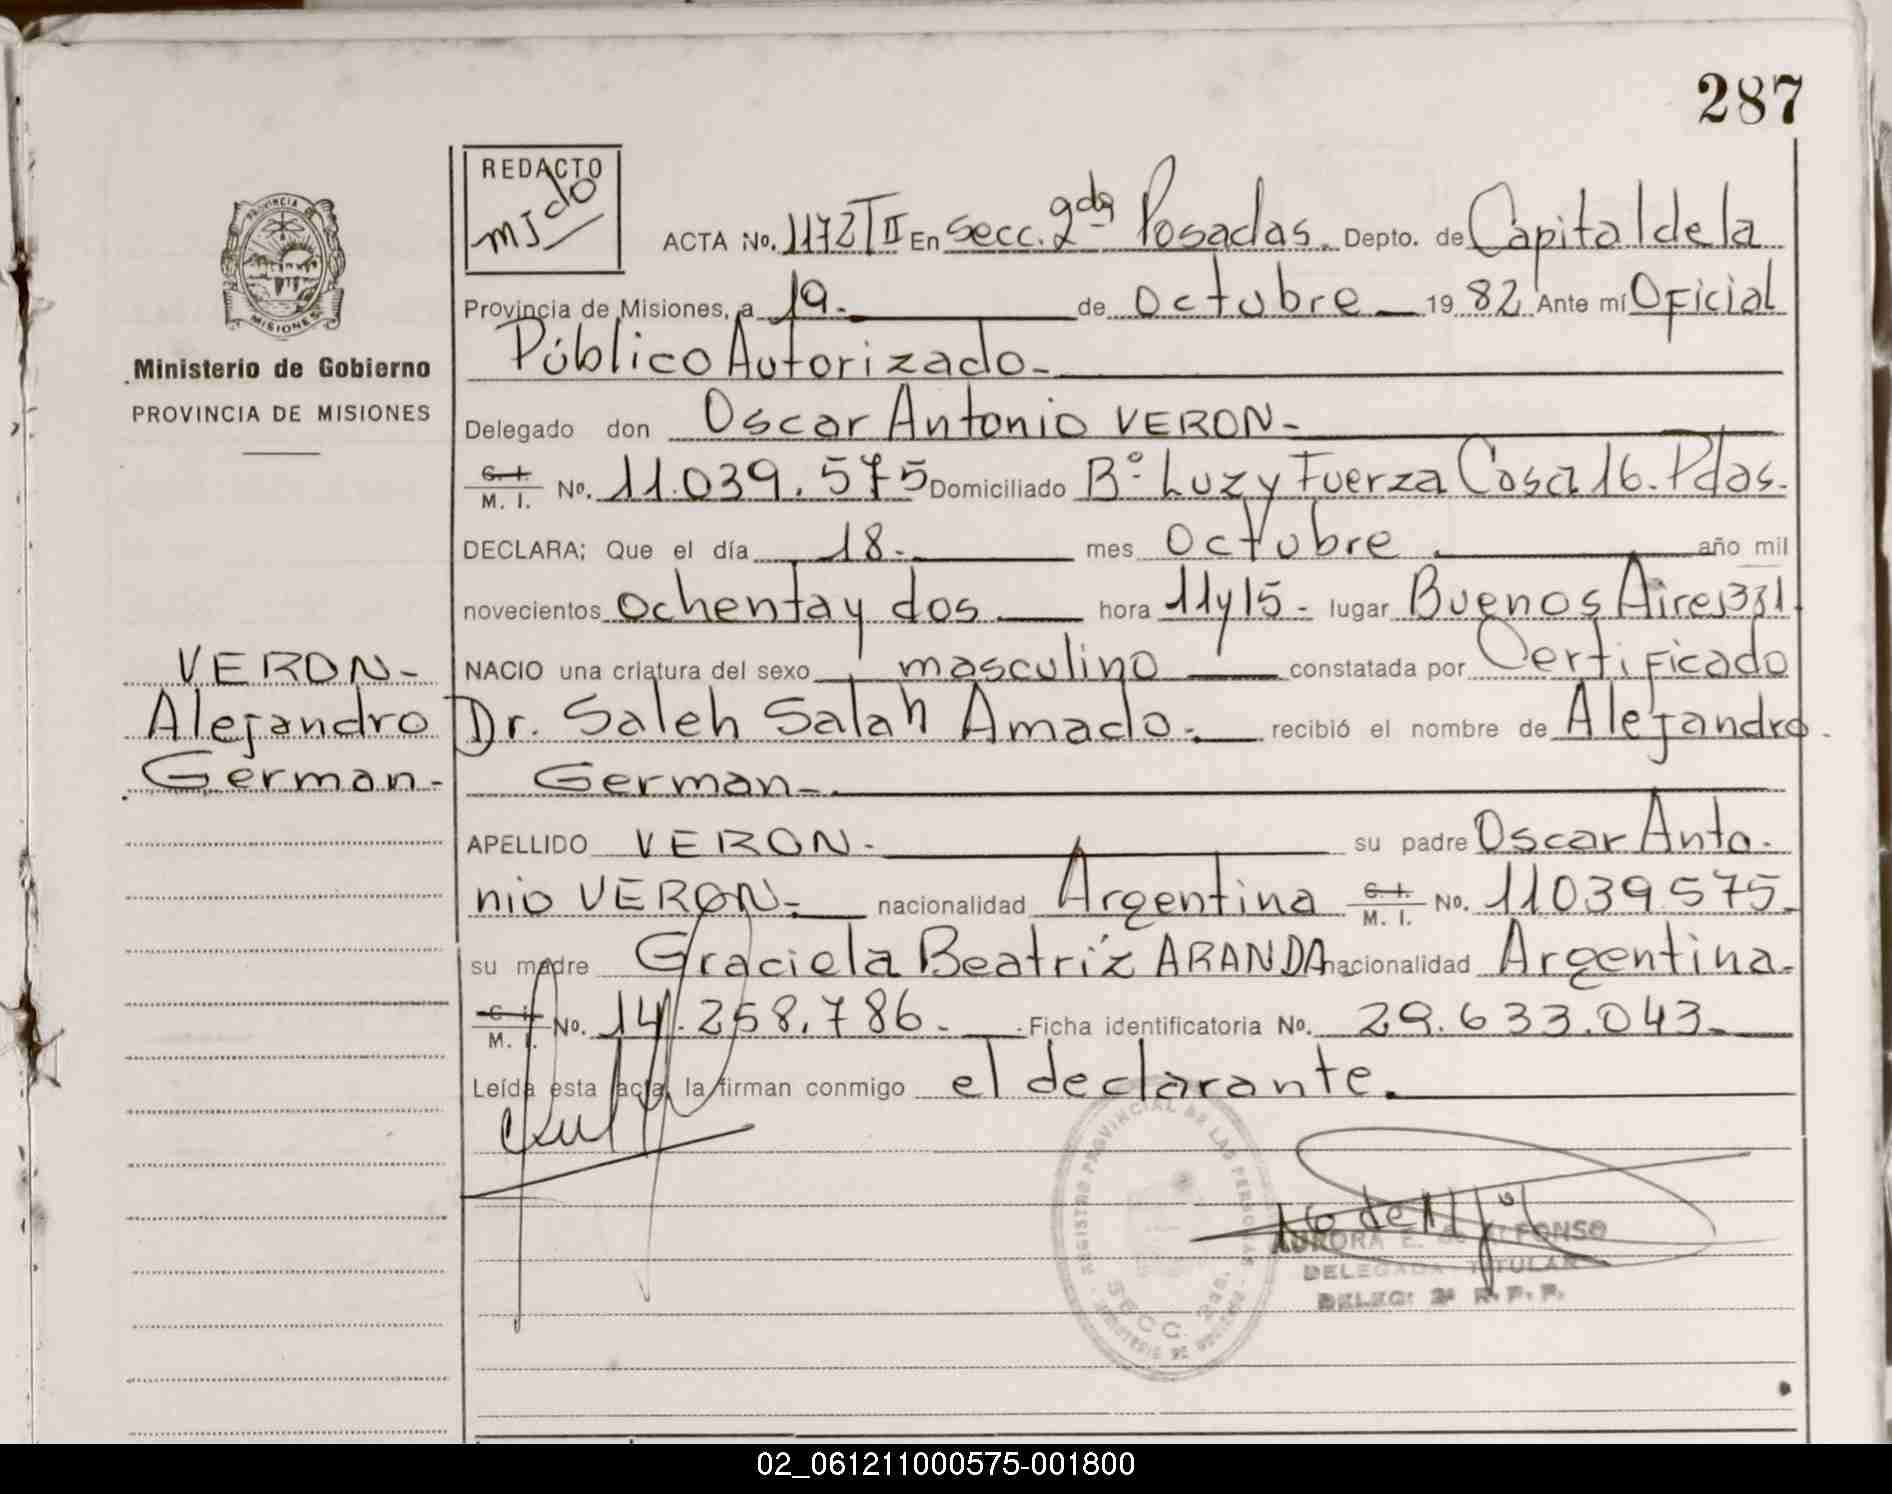 287
REDACTO
PROVINCIA DE
MISIONES
ACTA No. 1172 T II En Secc. 2da Posadas. Depto. de Capital de la
Provincia de Misiones, a 19.- de Octubre 1982 Ante mí Oficial
Ministerio de Gobierno
Público Autorizado.-
PROVINCIA DE MISIONES
Delegado don Oscar Antonio VERON-
C. I. M. I. No. 11.039.575 Domiciliado Bº Luz y Fuerza Casa 16. Pdas.
DECLARA; Que el día 18.- mes Octubre.- año mil
novecientos ochenta y dos hora 11 y 15.- lugar Buenos Aires 331
VERON- NACIO una criatura del sexo masculino constatada por Certificado
Alejandro Dr. Saleh Salah Amado.- recibió el nombre de Alejandro
German.- German.-
APELLIDO VERON.- su padre Oscar Anto-
nio VERON.- nacionalidad Argentina C. I. M. I. No. 11039575.
su madre Graciela Beatríz ARANDA nacionalidad Argentina.
C. I. M. I. No. 14.258.786.- Ficha identificatoria No. 29.633.043.-
Leída esta acta, la firman conmigo el declarante.
REGISTRO PROVINCIAL DE LAS PERSONAS
SECC. 2da.
AURORA E. de ALFONSO
DELEGADA TITULAR
DELEG: 2ª R. P. P.
02_061211000575-001800